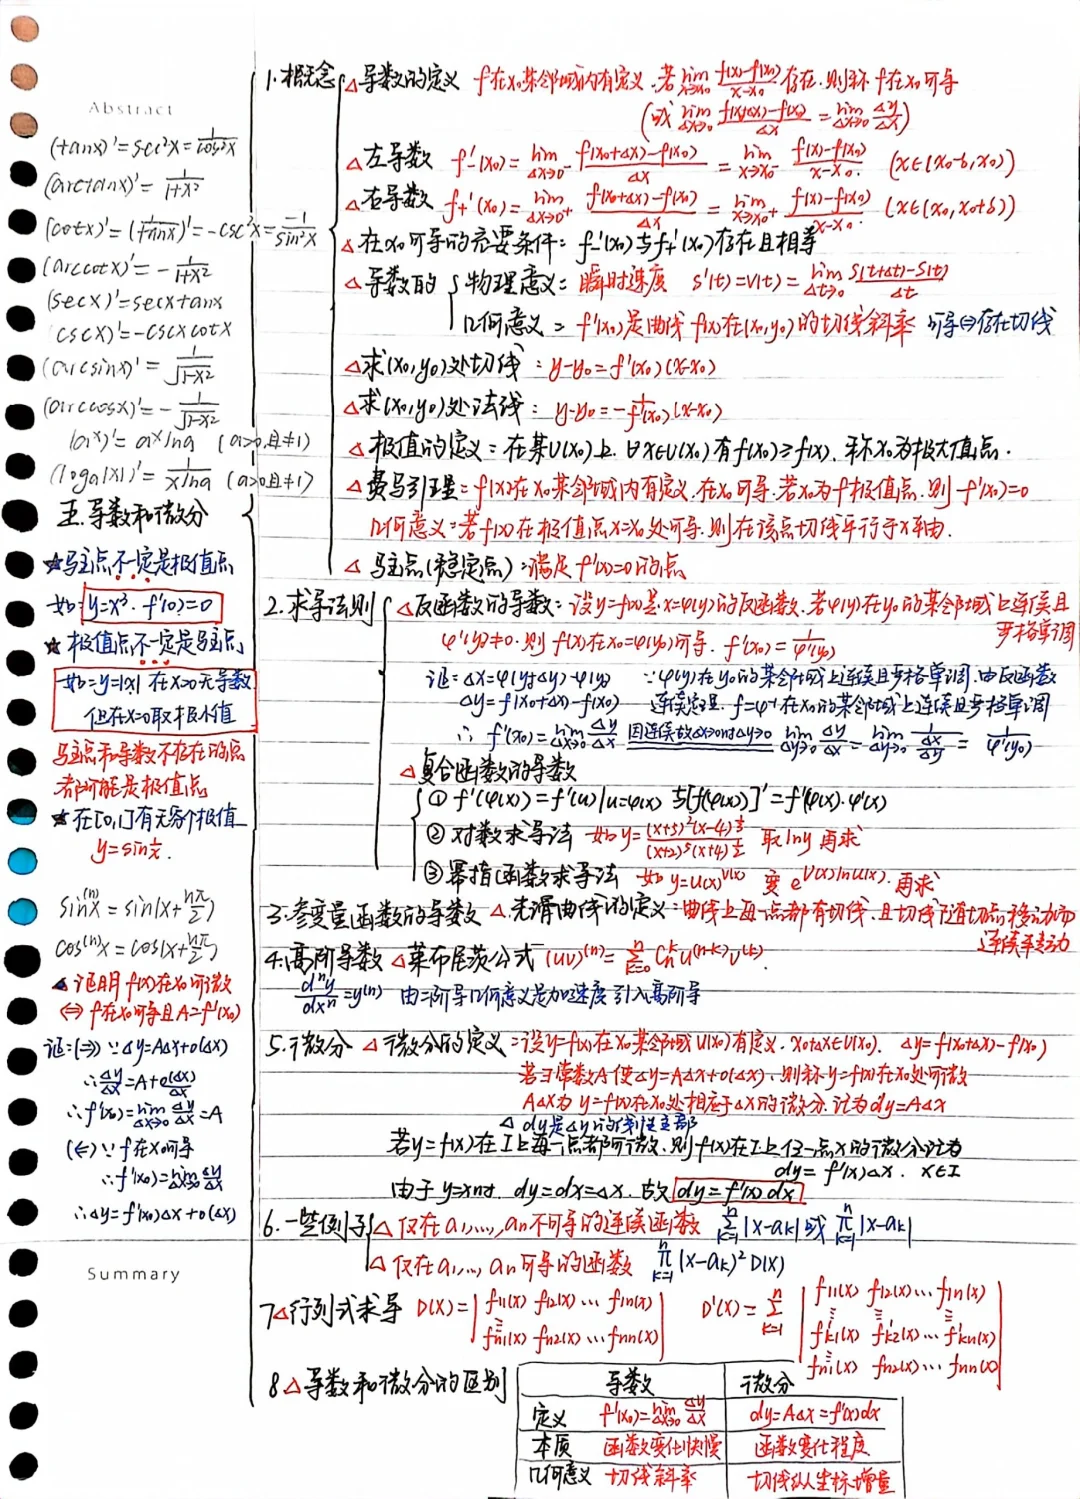 Abstract
(tanx)'=sec²x=1/cos²x
(arctanx)'=1/(1+x²)
(cotx)'=(1/tanx)'=-csc²x=-1/sin²x
(arccotx)'=-1/(1+x²)
(secx)'=secxtanx
(cscx)'=-cscxcotx
(arcsinx)'=1/√(1-x²)
(arccosx)'=-1/√(1-x²)
(aˣ)'=aˣlna (a>0且≠1)
(logₐ|x|)'=1/(xlna) (a>0且≠1)
五.导数和微分
★驻点不一定是极值点
如:y=x³.f'(0)=0
★极值点不一定是驻点
如=y=|x| 在x=0无导数
但在x=0取极小值
驻点和导数不存在的点
都可能是极值点
★在[0,1]有无穷个极值
y=sin1/x.
sin⁽ⁿ⁾x=sin(x+nπ/2)
cos⁽ⁿ⁾x=cos(x+nπ/2)
▲证明f(x)在x₀可微
⇔f在x₀可导且A=f'(x₀)
证=(⇒)∵Δy=AΔx+o(Δx)
∴Δy/Δx=A+o(Δx)/Δx
∴f'(x₀)=lim(Δx→0)Δy/Δx=A
(⇐)∵f在x₀可导
∴f'(x₀)=lim(Δx→0)Δy/Δx
∴Δy=f'(x₀)Δx+o(Δx)
Summary
1.概念 △导数的定义 f在x₀某邻域内有定义.若lim(x→x₀)(f(x)-f(x₀))/(x-x₀)存在.则称f在x₀可导
(或lim(Δx→0)(f(x₀+Δx)-f(x₀))/Δx=lim(Δx→0)Δy/Δx)
△左导数 f₋'(x₀)=lim(Δx→0⁻)(f(x₀+Δx)-f(x₀))/Δx=lim(x→x₀⁻)(f(x)-f(x₀))/(x-x₀). (x∈(x₀-δ,x₀))
△右导数 f₊'(x₀)=lim(Δx→0⁺)(f(x₀+Δx)-f(x₀))/Δx=lim(x→x₀⁺)(f(x)-f(x₀))/(x-x₀). (x∈(x₀,x₀+δ))
△在x₀可导的充要条件:f₋'(x₀)与f₊'(x₀)存在且相等
△导数的 物理意义:瞬时速度 s'(t)=v(t)=lim(Δt→0)(s(t+Δt)-s(t))/Δt
几何意义=f'(x₀)是曲线f(x)在(x₀,y₀)的切线斜率 可导⇔存在切线
△求(x₀,y₀)处切线:y-y₀=f'(x₀)(x-x₀)
△求(x₀,y₀)处法线:y-y₀=-1/f'(x₀)(x-x₀)
△极值的定义=在某U(x₀)上.∀x∈U(x₀)有f(x₀)≥f(x).称x₀为极大值点.
△费马引理=f(x)在x₀某邻域内有定义.在x₀可导.若x₀为f极值点.则f'(x₀)=0
几何意义=若f(x)在极值点x=x₀处可导.则在该点切线平行于x轴.
△驻点(稳定点):满足f'(x)=0的点
2.求导法则 △反函数的导数:设y=f(x)是x=φ(y)的反函数.若φ(y)在y₀的某邻域上连续且
严格单调
φ'(y₀)≠0.则f(x)在x₀=φ(y₀)可导.f'(x₀)=1/φ'(y₀)
证=Δx=φ(y₀+Δy)-φ(y₀) ∵φ(y)在y₀的某邻域上连续且严格单调.由反函数
Δy=f(x₀+Δx)-f(x₀) 连续定理.f=φ⁻¹在x₀的某邻域上连续且严格单调
∴f'(x₀)=lim(Δx→0)Δy/Δx 因连续故Δx→0时Δy→0 lim(Δy→0)Δy/Δx=lim(Δy→0)1/(Δx/Δy)=1/φ'(y₀)
△复合函数的导数
①f'(φ(x))=f'(u)|u=φ(x) 与[f(φ(x))]'=f'(φ(x)).φ'(x)
②对数求导法 如y=(x+5)²(x-4)^(1/3)/(x+2)⁵(x+4)^(1/2) 取lny再求
③幂指函数求导法 如y=u(x)^v(x) 变e^(v(x)lnu(x)).再求
3.参变量函数的导数 △光滑曲线的定义:曲线上每一点都有切线.且切线随切点移动而
连续转动
4.高阶导数 △莱布尼茨公式(uv)⁽ⁿ⁾=Σ(k=0,n)Cₙᵏu⁽ⁿ⁻ᵏ⁾v⁽ᵏ⁾.
dⁿy/dxⁿ=y⁽ⁿ⁾ 由二阶导几何意义是加速度引入高阶导
5.微分 △微分的定义:设y=f(x)在x₀某邻域U(x₀)有定义.x₀+Δx∈U(x₀). Δy=f(x₀+Δx)-f(x₀)
若∃常数A使Δy=AΔx+o(Δx).则称y=f(x)在x₀处可微
AΔx为y=f(x)在x₀处相应于Δx的微分.记为dy=AΔx
△dy是Δy的线性主部
若y=f(x)在I上每一点都可微.则f(x)在I上任一点x的微分记为
dy=f'(x)Δx. x∈I
由于y=x时.dy=dx=Δx.故dy=f'(x)dx
6.一些例子 △仅在a₁,…,aₙ不可导的连续函数 Σ(k=1,n)|x-aₖ|或Π(k=1,n)|x-aₖ|
△仅在a₁,…,aₙ可导的函数 Π(k=1,n)(x-aₖ)²D(x)
7△行列式求导 D(x)=|f₁₁(x) f₁₂(x)…f₁ₙ(x) ⋮ fₙ₁(x) fₙ₂(x)…fₙₙ(x)| D'(x)=Σ(k=1,n)|f₁₁(x) f₁₂(x)…f₁ₙ(x) ⋮ f'ₖ₁(x) f'ₖ₂(x)…f'ₖₙ(x) ⋮ fₙ₁(x) fₙ₂(x)…fₙₙ(x)|
8△导数和微分的区别
导数 微分
定义 f'(x₀)=lim(Δx→0)Δy/Δx dy=AΔx=f'(x)dx
本质 函数变化快慢 函数变化程度
几何意义 切线斜率 切线纵坐标增量